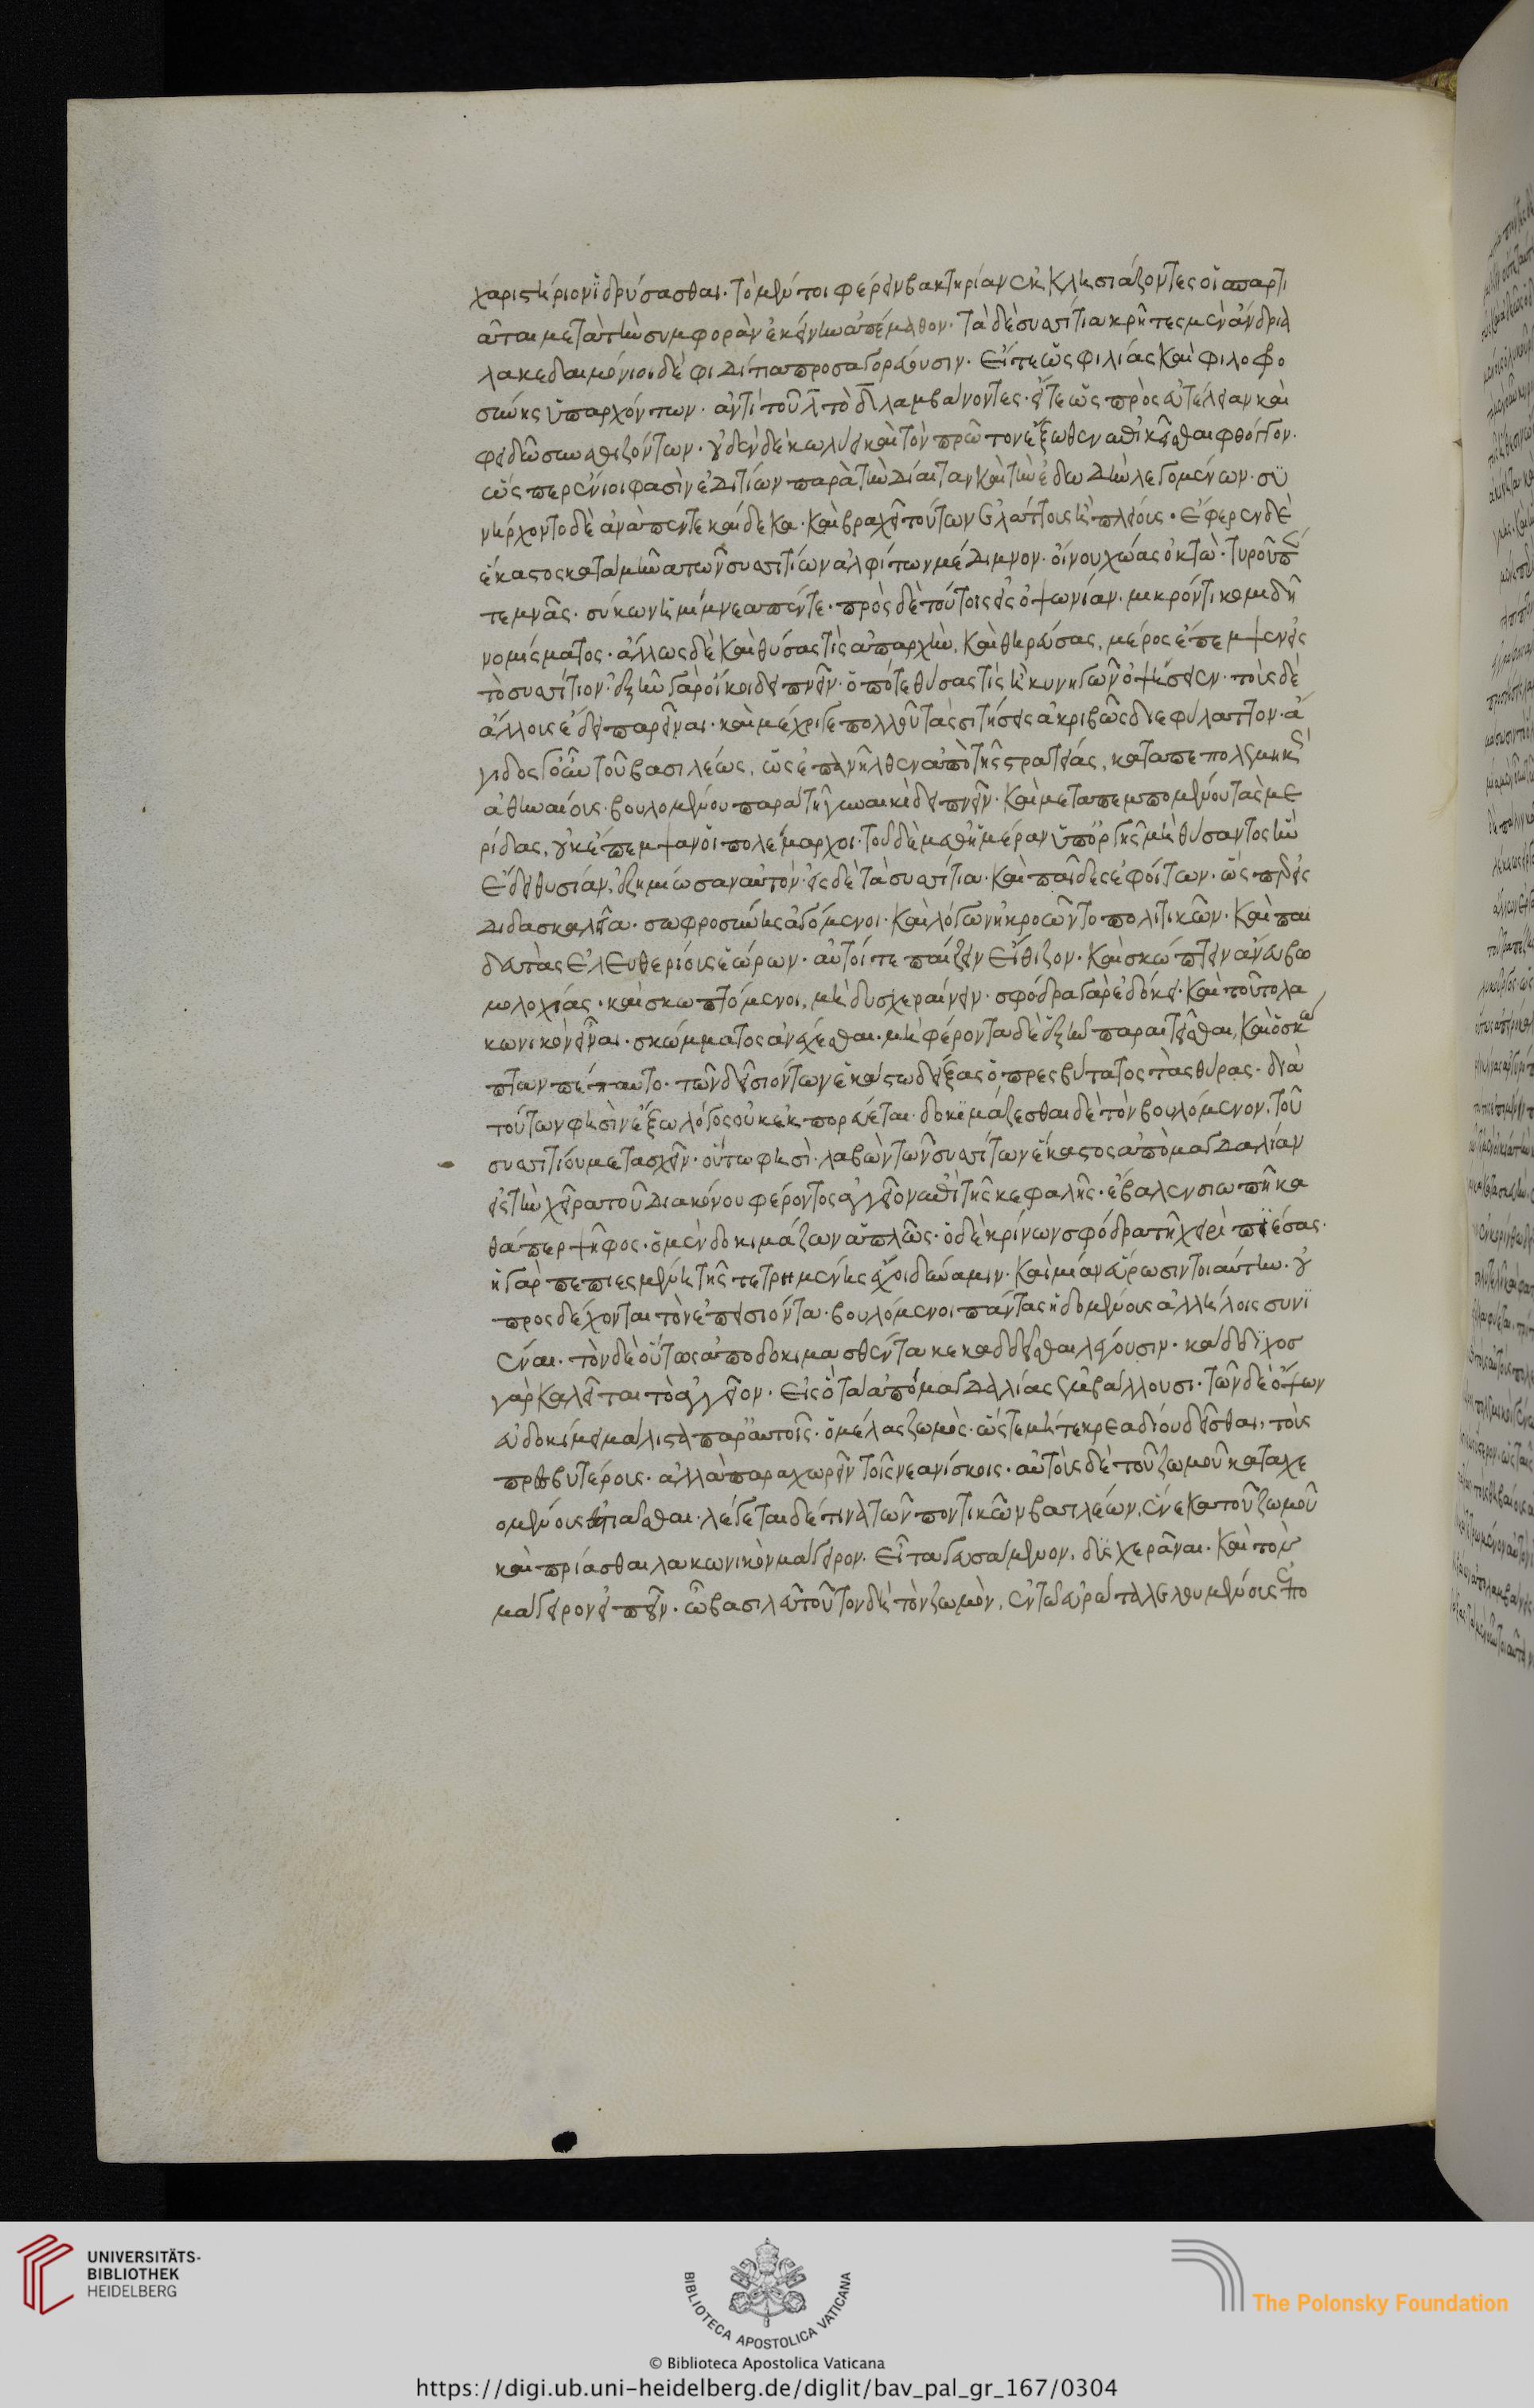 χαριστήριον ἱδρύσασθαι. τὸ μέν τοι φέρειν βακτηρίαν ἐκκλησιάζοντες οἱ σπαρτι
ᾶται μετὰ τὴν συμφορὰν ἐκείνην ἀπέμαθον. τὰ δὲ συσσίτια κρῆτες μὲν ἄνδρια
λακεδαιμόνιοι δὲ φιδίτια προσαγορεύουσιν. εἴτε ὡς φιλίας καὶ φιλοφρο
σύνης ὑπαρχόντων. ἀντὶ τοῦ λ τὸ δ λαμβάνοντες. εἴτε ὡς πρὸς εὐτέλειαν καὶ
φειδὼ συνεθιζόντων. οὐδὲν δὲ κωλύει καὶ τὸν πρῶτον ἔξωθεν ἐπικεῖσθαι φθόγγον.
ὥσπερ ἔνιοι φασὶν ἐδιτίων παρὰ τὴν δίαιταν καὶ τὴν ἐδωδὴν λεγομένων. συ
νήρχοντο δὲ ἀνὰ πεντεκαίδεκα. καὶ βραχεῖ τούτων ἐλάττους ἢ πλείους. ἔφερεν δὲ
ἕκαστος κατὰ μῆνα τῶν συσσιτίων ἀλφίτων μέδιμνον. οἴνου χόας ὀκτώ. τυροῦ πέν
τε μνᾶς. σύκων ἡμίμνεα πέντε. πρὸς δὲ τούτοις εἰς ὀψωνίαν. μικρόν τι κομιδῆ
νομίσματος. ἄλλως δὲ καὶ θύσας τὶς ἀπαρχὴν, καὶ θηρεύσας, μέρος ἔπεμψεν εἰς
τὸ συσσίτιον. ἐξῆν γὰρ οἴκοι δειπνεῖν. ὁπότε θύσας τὶς ἢ κυνηγῶν ὀψήσειεν. τοὺς δὲ
ἄλλους ἔδει παρεῖναι. καὶ μέχρι γε πολλοῦ τὰς σιτήσεις ἀκριβῶς διεφύλαττον. ἄ
γιδος γοῦν τοῦ βασιλέως, ὡς ἐπανῆλθεν ἀπὸ τῆς στρατείας, καταπεπολεμηκὼς
ἀθηναίους. βουλομένου παρὰ τῇ γυναικὶ δειπνεῖν. καὶ μεταπεμπομένου τὰς με
ρίδας, οὐκ ἔπεμψαν οἱ πολέμαρχοι. τοῦ δὲ μεθημέραν ὑπ' ὀργῆς μὴ θύσαντος ἣν
ἔδει θυσίαν, ἐζημίωσαν αὐτόν. εἰς δὲ τὰ συσσίτια. καὶ παῖδες ἐφοίτων. ὥσπερ εἰς
διδασκαλεῖα. σωφροσύνης ἀγόμενοι. καὶ λόγων ἠκροῶντο πολιτικῶν. καὶ παι
δευτὰς ἐλευθερίους ἑώρων. αὐτοί τε παίζειν εἴθιζον. καὶ σκώπτειν ἄνευ βω
μολοχίας. καὶ σκωπτόμενοι, μὴ δυσχεραίνειν. σφόδρα γὰρ ἐδόκει. καὶ τοῦτο λα
κωνικὸν εἶναι. σκώμματος ἀνέχεσθαι. μὴ φέροντα δὲ ἐξῆν παραιτεῖσθαι, καὶ ὁ σκώ
πτων πέπαυτο. τῶν δ' εἰσιόντων ἑκάστω δείξας ὁ πρεσβύτατος τὰς θύρας. διὰ
τούτων φησὶν ἔξω λόγος οὐκ ἐκπορεύεται. δοκιμάζεσθαι δὲ τὸν βουλόμενον. τοῦ
συσσιτίου μετασχεῖν. οὕτω φησὶ. λαβὼν τῶν συσσίτων ἕκαστος ἀπομαγδαλίαν
εἰς τὴν χεῖρα τοῦ διακόνου φέροντος ἀγγεῖον ἐπὶ τῆς κεφαλῆς. ἔβαλεν σιωπῇ κα
θάπερ ψῆφος. ὁ μὲν δοκιμάζων ἁπλῶς. ὁ δὲ κρίνων σφόδρα τῇ χειρὶ πιέσας.
ἡ γὰρ πεπιεσμένη τῆς τετρημένης ἔχει δύναμιν. καὶ μίαν εὕρωσιν τοιαύτην. οὐ
προσδέχονται τὸν ἐπεισιόντα. βουλόμενοι πάντας ἡδομένους ἀλλήλοις συνι
έναι. τὸν δὲ οὕτως ἀποδοκιμασθέντα κεκαδδεῖσθαι λέγουσιν. κάδδιχος
γὰρ καλεῖται τὸ ἀγγεῖον. εἰς ὃ τὰς ἀπομαγδαλίας ἐμβάλλουσι. τῶν δὲ ὄψων
εὐδοκίμει μάλιστα παρ' αὐτοῖς. ὁ μέλας ζωμὸς. ὥστε μήτε κρεαδίου δεῖσθαι, τοὺς
πρεσβυτέρους. ἀλλὰ παραχωρεῖν τοῖς νεανίσκοις. αὐτοὺς δὲ τοῦ ζωμοῦ καταχε
ομένους ἑστιᾶσθαι. λέγεται δέ τινα τῶν ποντικῶν βασιλέων, ἕνεκα τοῦ ζωμοῦ
καὶ πρίασθαι λακωνικὸν μάγειρον. εἶτα γευσάμενον, δυσχερᾶναι. καὶ τὸν
μάγειρον εἰπεῖν. ὦ βασιλεῦ τοῦτον δεῖ τὸν ζωμὸν, ἐν τῶ εὐρώτα λελουμένοις ἐπο
UNIVERSITÄTS-
BIBLIOTHEK
HEIDELBERG
BIBLIOTECA APOSTOLICA VATICANA
The Polonsky Foundation
© Biblioteca Apostolica Vaticana
https://digi.ub.uni-heidelberg.de/diglit/bav_pal_gr_167/0304